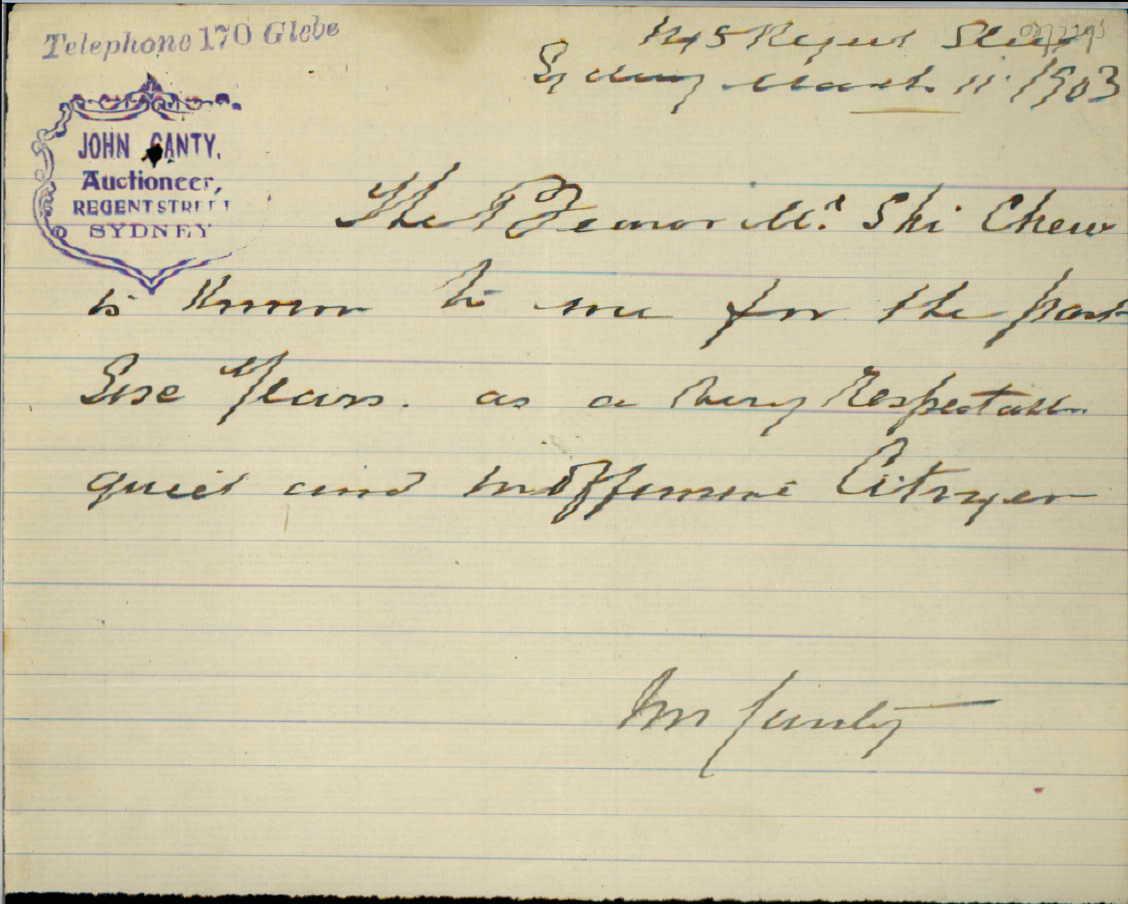 Telephone 170 Glebe
Regent Street
Sydney March 11. 1903
JOHN CANTY,
Auctioneer,
REGENT STREET
SYDNEY
The Bearer Mr. Shi Chew
is known to me for the past
Years. as a very Respectable
quiet and inoffensive Citizen
Jno Canty